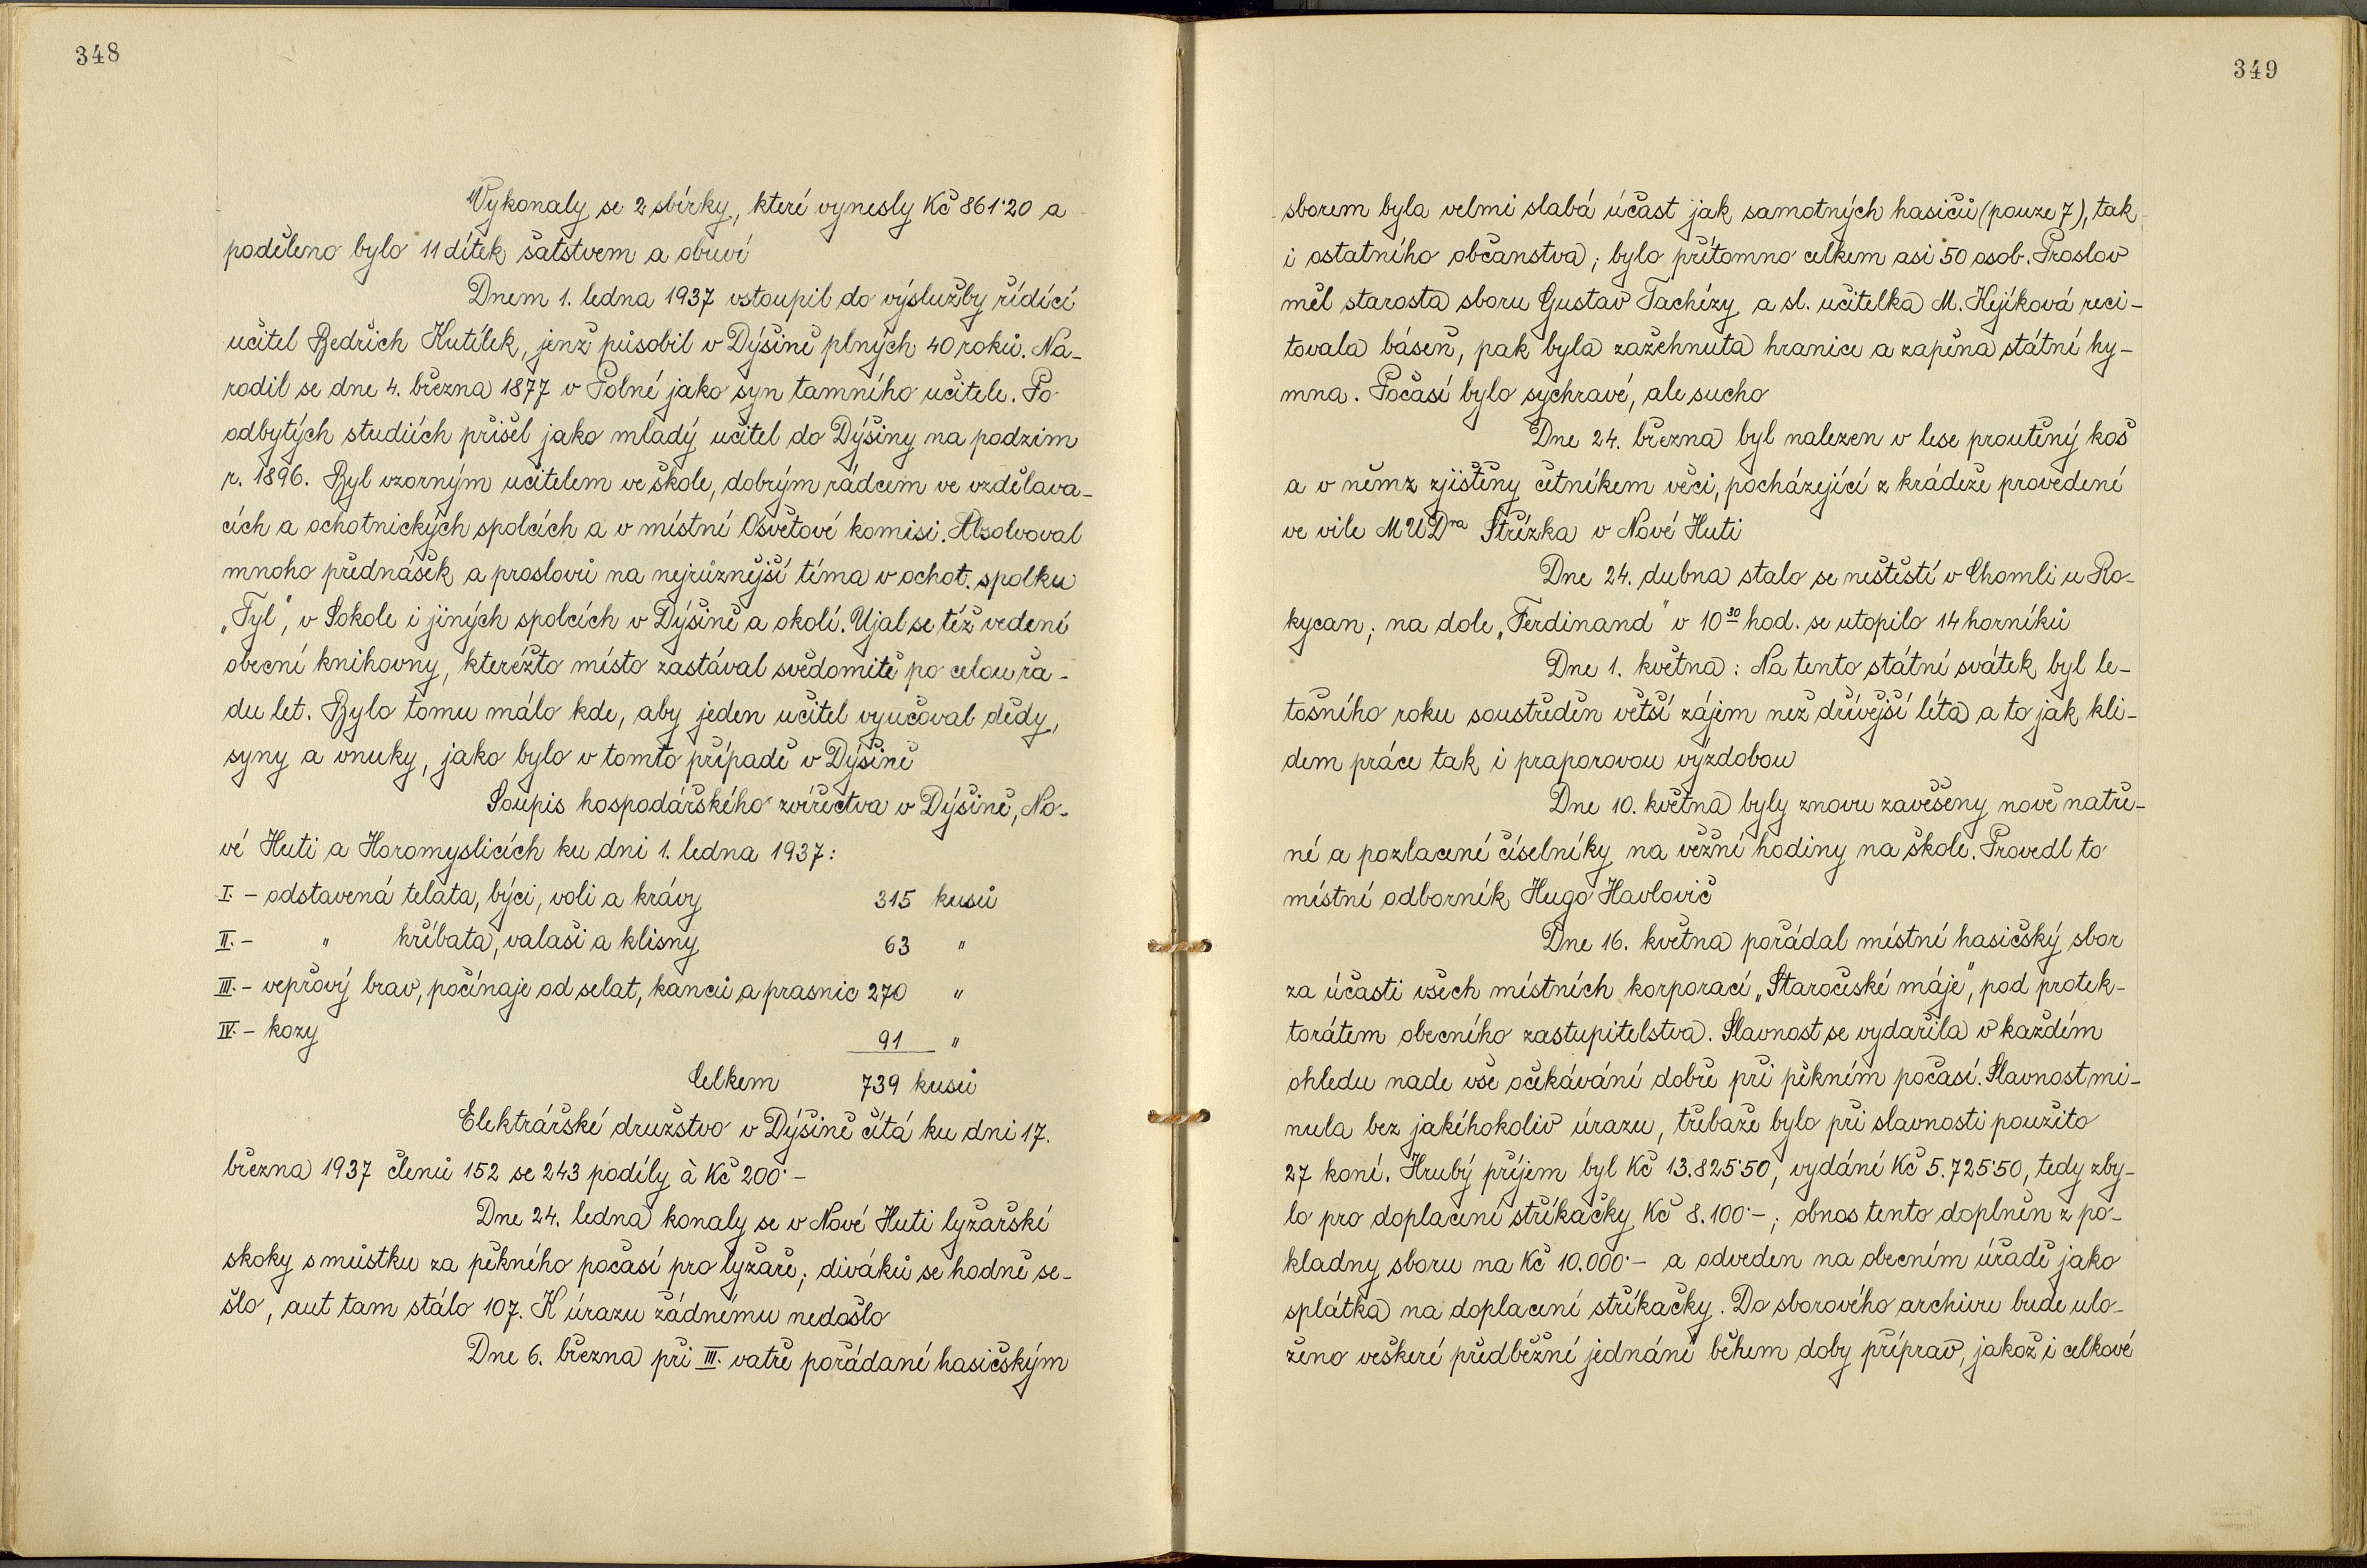 348
Vykonaly se 2 sbírky, které vynesly Kč 861·20 a
poděleno bylo 11 dítek šatstvem a obuví
Dnem 1. ledna 1937 vstoupil do výslužby řídící
učitel Bedřich Kutílek, jenž působil v Dýšině plných 40 roků. Na-
rodil se dne 4. března 1877 v Polné jako syn tamního učitele. Po
odbytých studiích přišel jako mladý učitel do Dýšiny na podzim
r. 1896. Byl vzorným učitelem ve škole, dobrým rádcem ve vzdělava-
cích a ochotnických spolcích a v místní Osvětové komisi. Absolvoval
mnoho přednášek a proslovů na nejrůznější téma v ochot. spolku
„Tyl", v Sokole i jiných spolcích v Dýšině a okolí. Ujal se též vedení
obecní knihovny, kteréžto místo zastával svědomitě po celou řa-
du let. Bylo tomu málo kde, aby jeden učitel vyučoval dědy,
syny a vnuky, jako bylo v tomto případě v Dýšině
Soupis hospodářského zvířectva v Dýšině, No-
vé Huti a Horomyslicích ku dni 1. ledna 1937:
I. – odstavená telata, býci, voli a krávy 315 kusů
II. – " hříbata, valaši a klisny 63 "
III. – vepřový brav, počínaje od selat, kanců a prasnic 270 "
IV. – kozy 91 "
Celkem 739 kusů
Elektrářské družstvo v Dýšině čítá ku dni 17.
března 1937 členů 152 se 243 podíly à Kč 200·–
Dne 24. ledna konaly se v Nové Huti lyžařské
skoky s můstku za pěkného počasí pro lyžaře; diváků se hodně se-
šlo, aut tam stálo 107. K úrazu žádnému nedošlo
Dne 6. března při III. vatře pořádané hasičským
349
sborem byla velmi slabá účast jak samotných hasičů (pouze 7), tak
i ostatního občanstva; bylo přítomno celkem asi 50 osob. Proslov
měl starosta sboru Gustav Tachézy a sl. učitelka M. Kejíková reci-
tovala báseň, pak byla zažehnuta hranice a zapěna státní hy-
mna. Počasí bylo sychravé, ale sucho
Dne 24. března byl nalezen v lese proutěný koš
a v němz zjištěny četníkem věci, pocházející z krádeže provedené
ve vile MUDra Střízka v Nové Huti
Dne 24. dubna stalo se neštěstí v Chomli u Ro-
kycan; na dole „Ferdinand" v 10³⁰ hod. se utopilo 14 horníků
Dne 1. května: Na tento státní svátek byl le-
tošního roku soustředěn větší zájem než dřívější léta a to jak kli-
dem práce tak i praporovou výzdobou
Dne 10. května byly znovu zavěšeny nově natře-
né a pozlacené číselníky na věžní hodiny na škole. Provedl to
místní odborník Hugo Havlovič
Dne 16. května pořádal místní hasičský sbor
za účasti všech místních korporací „Staročeské máje", pod protek-
torátem obecního zastupitelstva. Slavnost se vydařila v každém
ohledu nade vše očekávání dobře při pěkném počasí. Slavnost mi-
nula bez jakéhokoliv úrazu, třebaže bylo při slavnosti použito
27 koní. Hrubý příjem byl Kč 13.825·50, vydání Kč 5.725·50, tedy zby-
lo pro doplacení stříkačky Kč 8.100·–; obnos tento doplněn z po-
kladny sboru na Kč 10.000·– a odveden na obecním úřadě jako
splátka na doplacení stříkačky. Do sborového archivu bude ulo-
ženo veškeré předběžné jednání během doby příprav, jakož i celkové